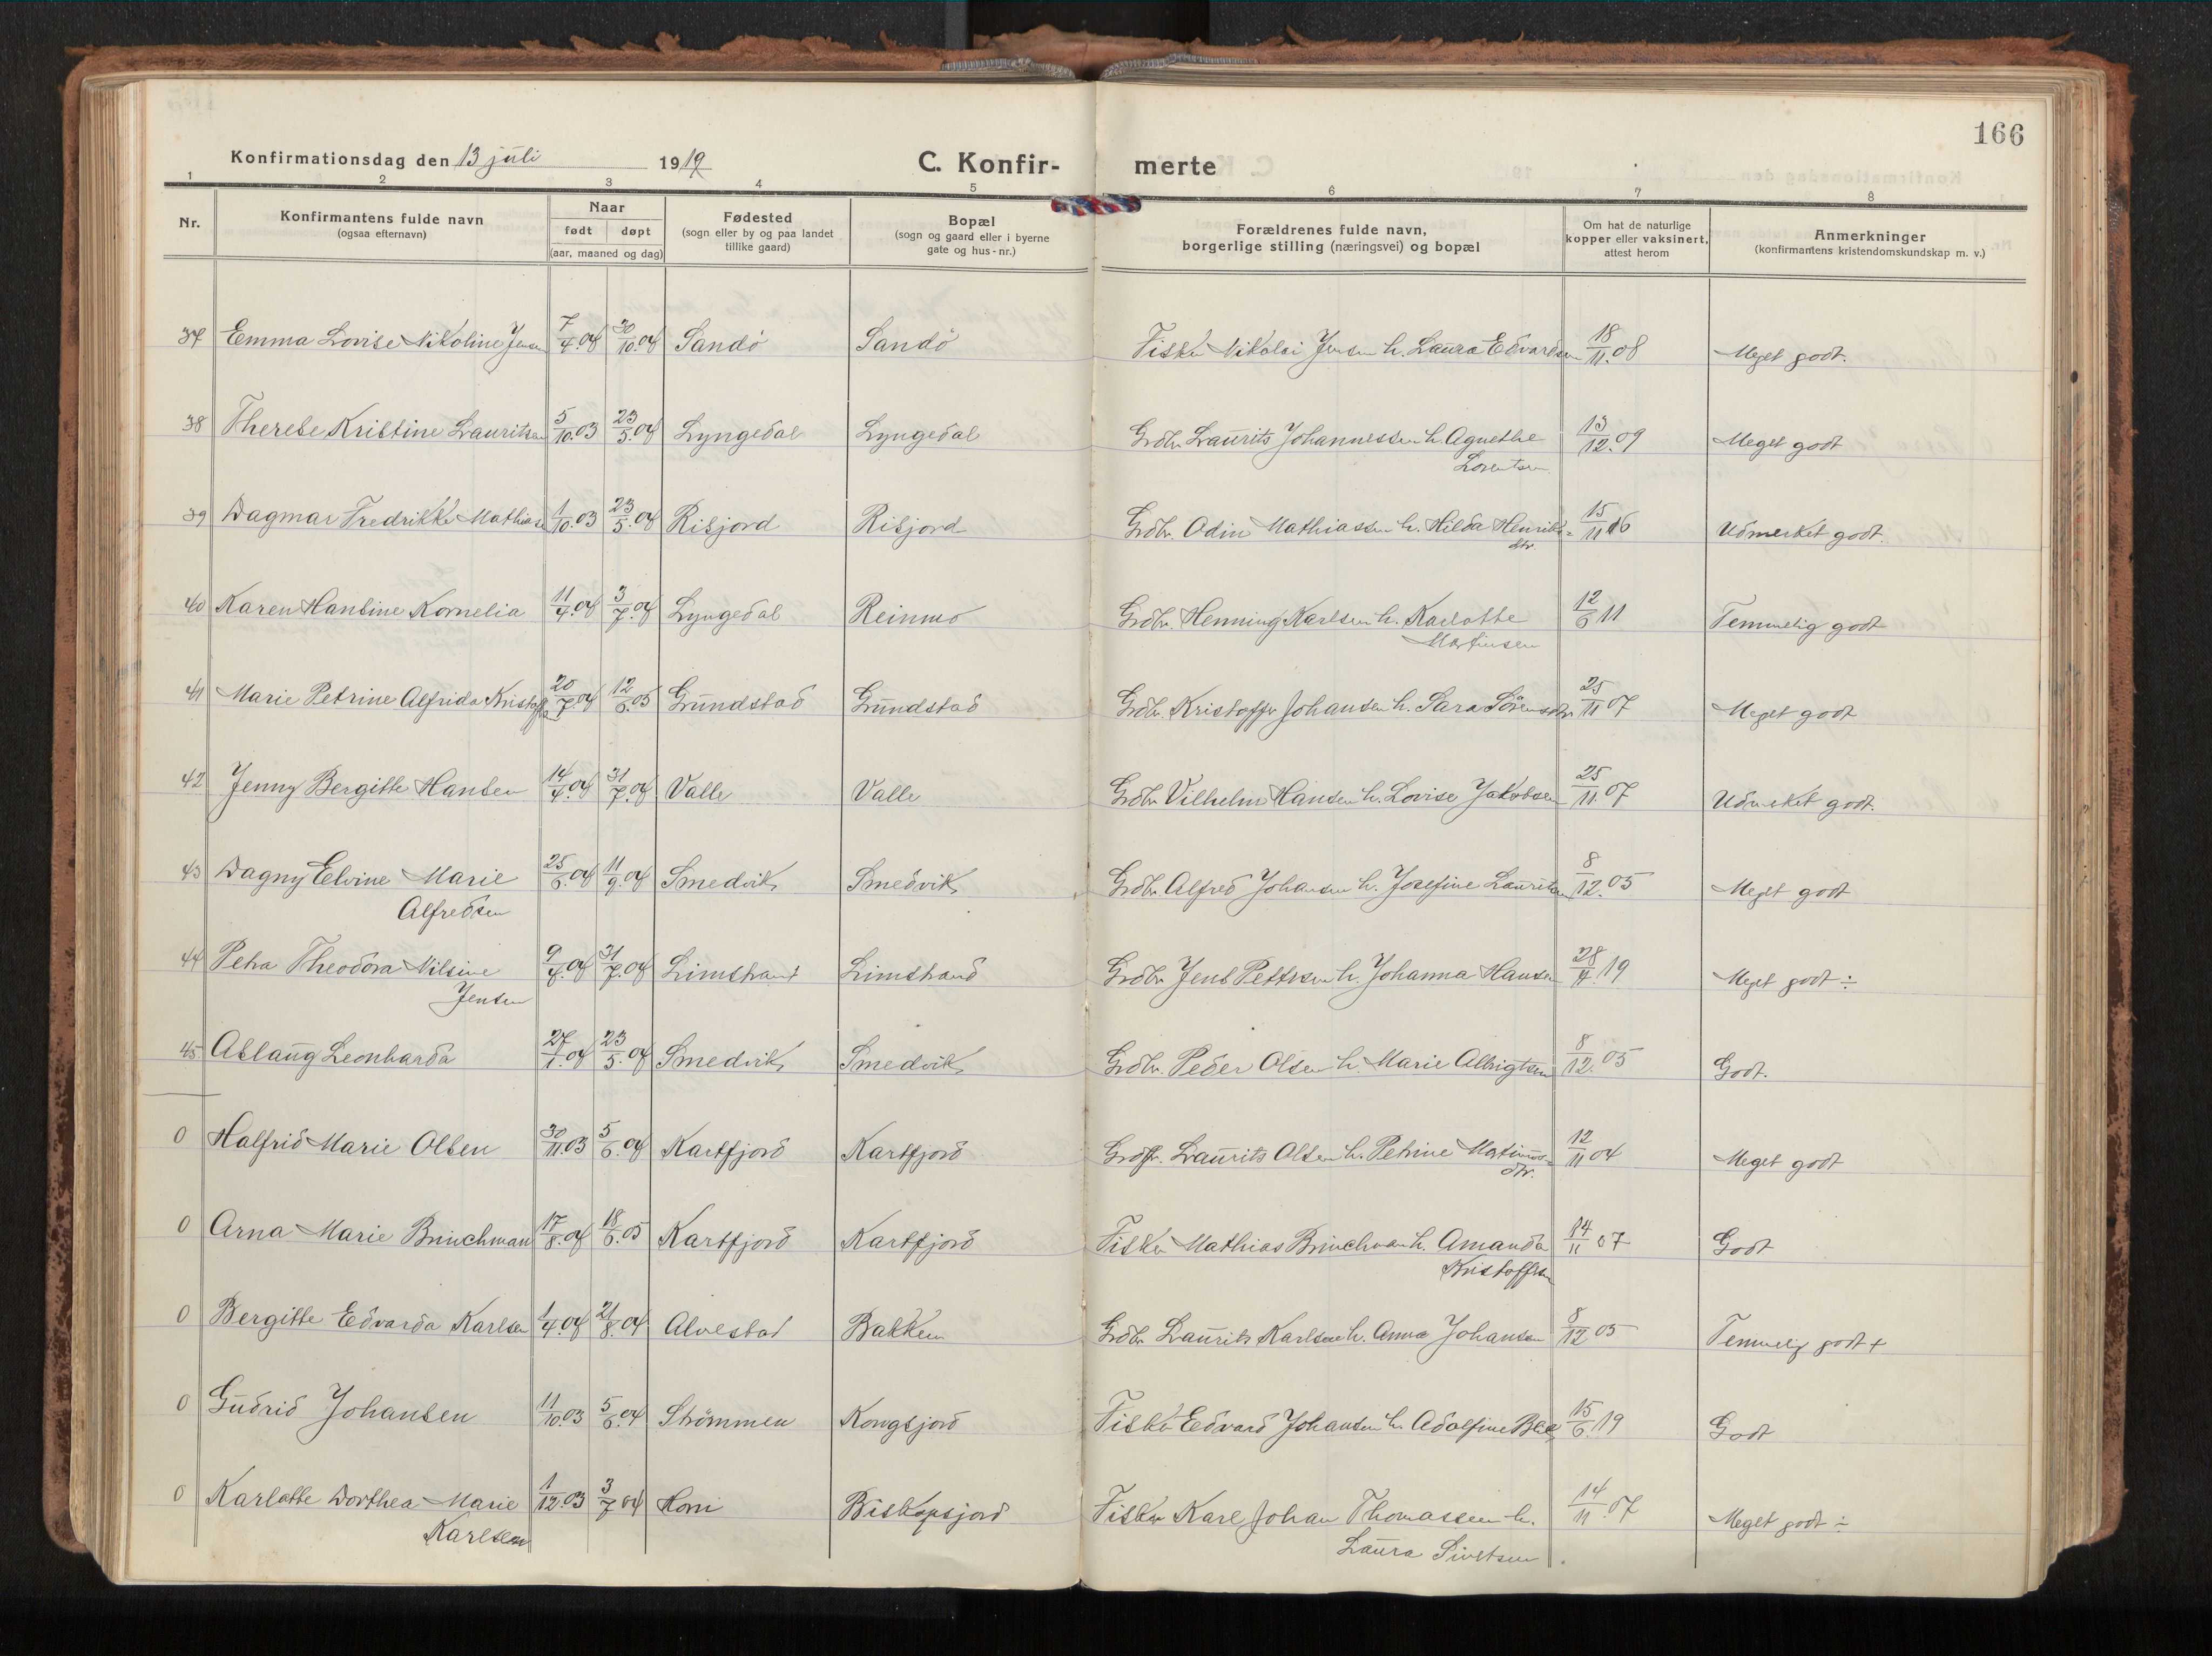 166
Konfirmationsdag den 13 juli 1919 C. Konfir- merte
1 2 3 4 5 6 7 8
Nr. Konfirmantens fulde navn (ogsaa efternavn) Naar født døpt (aar, maaned og dag) Fødested (sogn eller by og paa landet tillike gaard) Bopæl (sogn og gaard eller i byerne gate og hus-nr.) Forældrenes fulde navn, borgerlige stilling (næringsvei) og bopæl Om hat de naturlige kopper eller vaksinert, attest herom Anmerkninger (konfirmantens kristendomskundskap m. v.)
37 Emma Lovise Nikoline Jensen 7/4.04 30/10.04 Sandö Sandö Fisker Nikolai Jensen h. Laura Edvardsen 18/11.08 Meget godt.
38 Therese Kristine Lauritsen 5/10.03 23/5.04 Lyngedal Lyngedal Grdbr. Laurits Johannessen h. Agnethe 13/12.09 Meget godt
Lorentsen
39 Dagmar Fredrikke Mathiase 1/10.03 23/5.04 Risjord Risjord Grdbr. Odin Mathiassen h. Hilda Henriks= 15/11 16 Udmerket godt.
dtr.
40 Karen Hansine Kornelia 11/4.04 3/7.04 Lyngedal Reinmo Grdbr. Henning Karlsen h. Karlotte 12/6 11 Temmelig godt
Martinsen
41 Marie Petrine Alfrida Kristoffs 20/7.04 12/6.05 Grundstad Grundstad Grdbr. Kristoffer Johansen h. Sara Sörensdtr 25/11 07 Meget godt
42 Jenny Bergitte Hansen 14/4.04 31/7.04 Valle Valle Grdbr Vilhelm Hansen h. Lovise Jakobsen 25/11.07 Udmerket godt.
43 Dagny Elvine Marie 25/6.04 11/9.04 Smedvik Smedvik Grdbr Alfred Johansen h. Josefine Lauritsen 8/12.05 Meget godt
Alfredsen
44 Petra Theodora Nilsine 9/4.04 31/7.04 Limstrand Limstrand Grdbr Jens Pettersen h. Johanna Hansen 28/4.19 Meget godt ÷
Jensen
45 Aslaug Leonharda 27/1.04 23/5.04 Smedvik Smedvik Grdbr. Peder Olsen h. Marie Albrigtsen 8/12.05 Godt.
0 Halfrid Marie Olsen 30/11.03 5/6.04 Kartfjord Kartfjord Laurits Olsen h. Petrine Martinus= 12/11 04 Meget godt
dtr.
0 Arna Marie Brinchman 17/8.04 18/6.05 Kartfjord Kartfjord Fisker Mathias Brinchman h. Amanda 14/11 07 Godt
Kristoffersen
0 Bergitte Edvarda Karlsen 1/4.04 21/8.04 Alvestad Bakken Grdbr Laurits Karlsen h. Anna Johansen 8/12 05 Temmelig godt +
0 Gudrid Johansen 11/10.03 5/6.04 Strömmen Kongsjord Fisker Edvard Johansen h. Adolfine 15/6.19 Godt
0 Karlotte Dorthea Marie 1/12.03 3/7 04 Horri Biskopsjord Fisker Karl Johan Thomassen h. 14/11.07 Meget godt ÷
Karlsen Laura Sivertsen